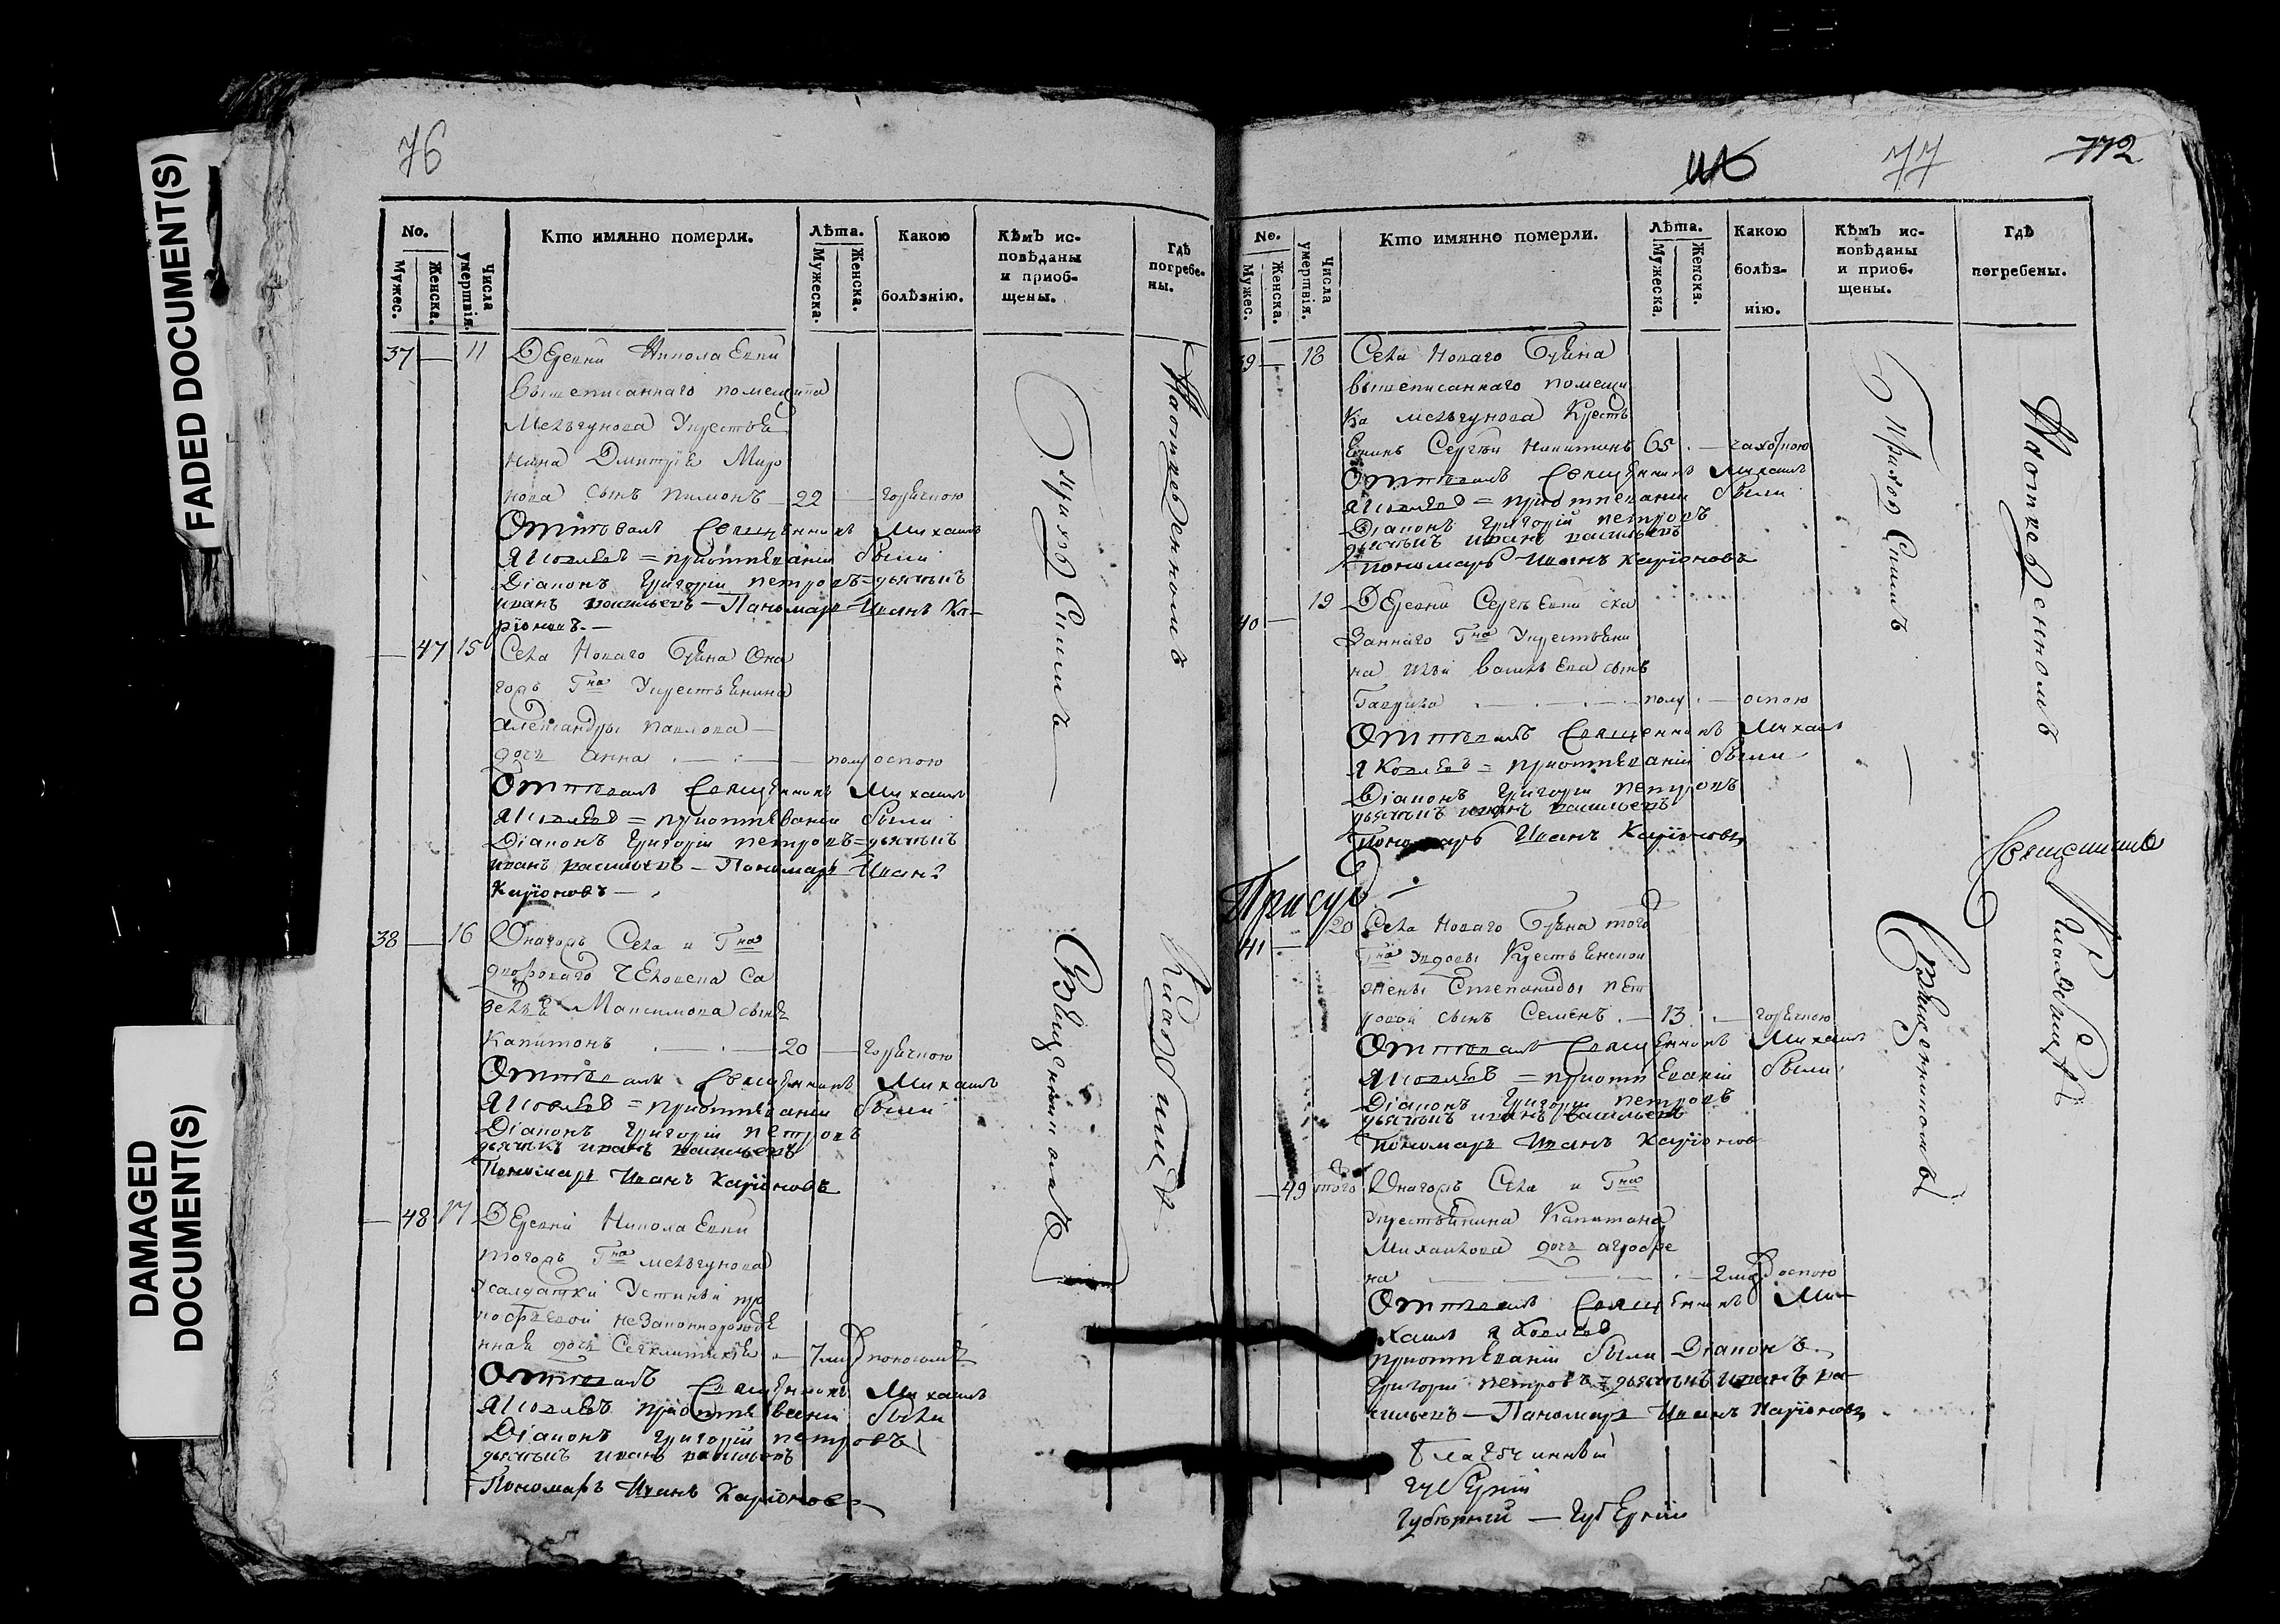 FADED DOCUMENT(S)
DAMAGED
DOCUMENT(S)
76
No.
Мужес.
Женска.
Числа
умертвія.
Кто имянно померли.
Лѣта.
Мужеска.
Женска.
Какою
болѣзнію.
Кѣмъ ис-
повѣданы
и приоб-
щены.
Гдѣ
погребе-
ны.
37 — 11 Деревни Николаевки
вышеписаннаго помещика
Мельгунова
нина Дмитрїя Миро
нова сынъ Пимонъ — 22 — горячкою
Отпѣвалъ Священникъ Михаилъ
Яковлевъ = приотпѣваніи были
Діаконъ Григорій петровъ = дьячекъ
иванъ васильевъ — Пономарь Иванъ Ка-
рїоновъ. —
— 47 15 Села Новаго
Гна
Александры павлова —
дочь Анна — полу оспою
Отпѣвалъ Священникъ Михаилъ
Яковлевъ = приотпѣваніи были
Діаконъ Григорій петровъ = дьячекъ
иванъ васильевъ — Пономарь Иванъ
Карїоновъ —
38 — 16 Онагожъ Села и Гна
дворoваго человека Са
велья Максимова сынъ
Капитонъ — 20 — горячкою
Отпѣвалъ Священникъ Михаилъ
Яковлевъ = приотпѣваніи были
Діаконъ Григорій петровъ
дьячекъ иванъ васильевъ
Пономарь Иванъ Карїоновъ
— 48 17 Деревни Николаевки
тогожъ Гна мельгунова
солдатки Устиньи про
кофьевой незаконнорожде
нная дочь — 7 поносомъ
Отпѣвалъ Священникъ Михаилъ
Яковлевъ приотпѣваніи были
Діаконъ Григорій петровъ
дьячекъ иванъ васильевъ
Пономарь Иванъ Карїоновъ
Приход Симъ
Священникомъ
На отведенномъ
Кладбище
77
112
No.
Мужес.
Женска.
Числа
умертвія.
Кто имянно померли.
Лѣта.
Мужеска.
Женска.
Какою
болѣз-
нію.
Кѣмъ ис-
повѣданы
и приоб-
щены.
Гдѣ
погребены.
39 — 18 Села Новаго
вышеписаннаго помещи
ка мельгунова Кресть
енинъ Сергѣй Никитинъ 65 — чахоткою
Отпѣвалъ Священникъ Михаилъ
Яковлевъ = приотпѣваніи были
Діаконъ Григорій петровъ
дьячекъ иванъ васильевъ
пономарь Иванъ Карїоновъ
40 — 19 Деревни Сергѣевки ска
заннаго Гна
на Ильи васильева сынъ
Гаврила — полу — оспою
Отпѣвалъ Священникъ Михаилъ
Яковлевъ = приотпѣваніи были
Діаконъ Григорій петровъ
дьячекъ иванъ васильевъ
Пономарь Иванъ Карїоновъ
41 — 20 Села Новаго того
Гна вдовы Крестьенской
жены Степаниды пет
ровой сынъ Семенъ — 13 — горячкою
Отпѣвалъ Священникъ Михаилъ
Яковлевъ = приотпѣваніи были
Діаконъ Григорій петровъ
дьячекъ иванъ васильевъ
Пономарь Иванъ Карїоновъ
— 49 того Онагожъ Села и Гна
Капитона
Михайлова дочь агрофе
на — 2 оспою
Отпѣвалъ Священникъ Ми-
хаилъ Яковлевъ
приотпѣваніи были Діаконъ
Григорій петровъ = дьячекъ иванъ ва-
сильевъ — Пономарь Иванъ Карїоновъ
Приход Симъ
Священникомъ
На отведенномъ
Кладбище
Священникъ
Благочинный